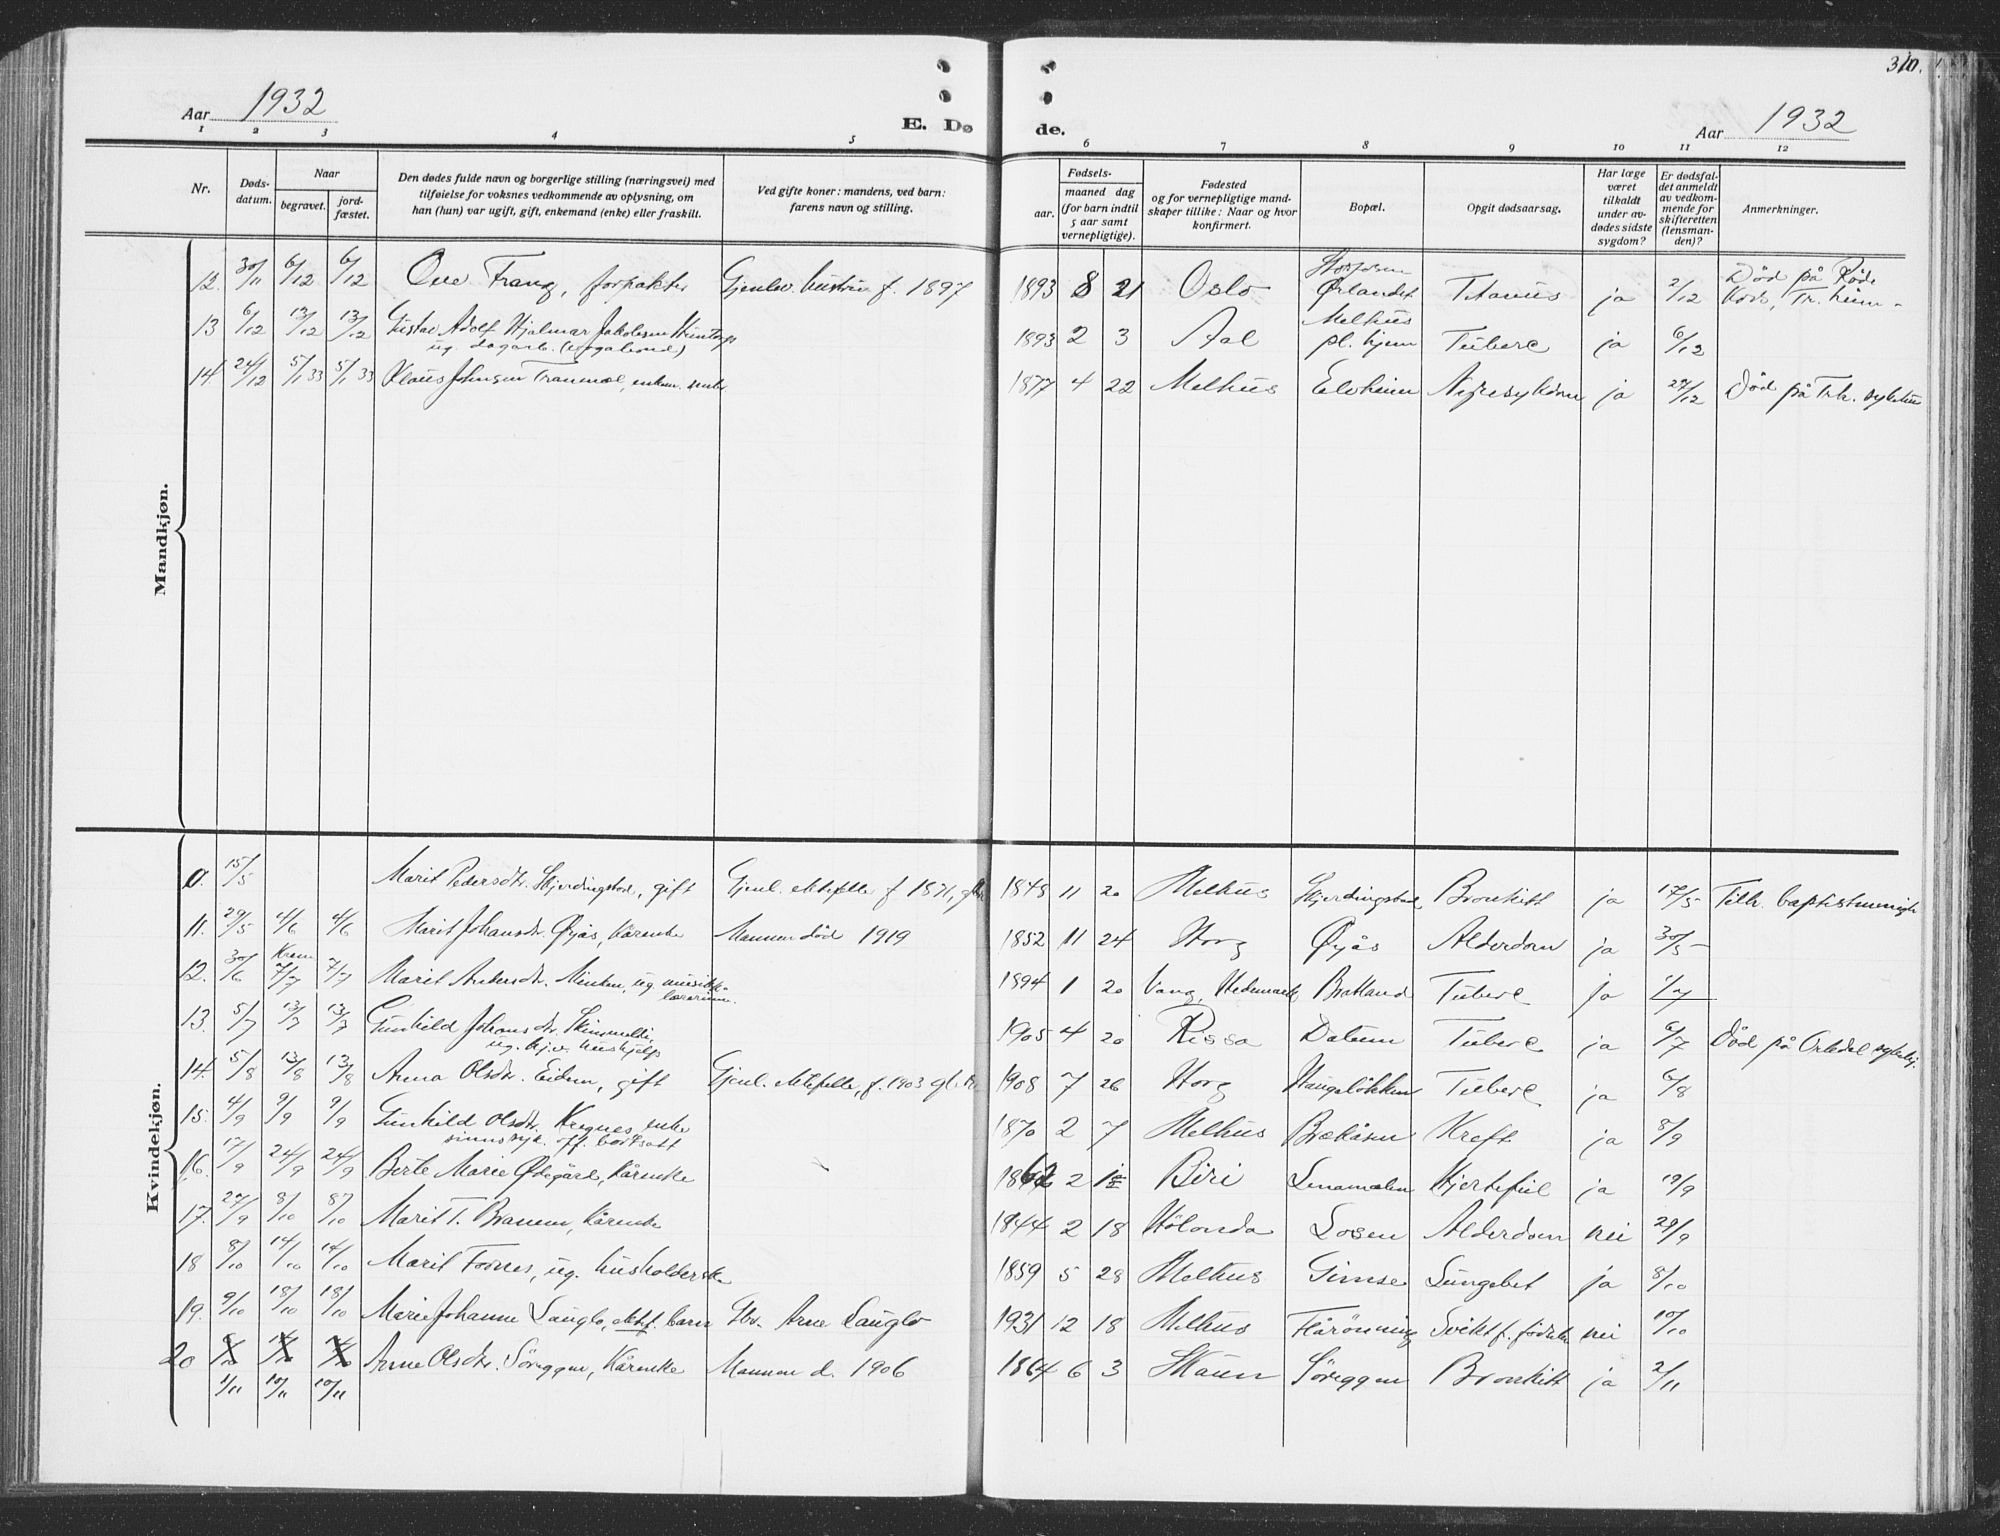 310.
Aar 1932
E. Dø
de.
Aar 1932
1 2 3 4 5 6 7 8 9 10 11 12
Nr.
Døds-
datum.
Naar
begravet.
jord-
fæstet.
Den dødes fulde navn og borgerlige stilling (næringsvei) med
tilføielse for voksnes vedkommende av oplysning, om
han (hun) var ugift, gift, enkemand (enke) eller fraskilt.
Ved gifte koner: mandens, ved barn:
farens navn og stilling.
Fødsels-
aar.
maaned dag
(for barn indtil
5 aar samt
vernepligtige).
Fødested
og for vernepligtige mand-
skaper tillike: Naar og hvor
konfirmert.
Bopæl.
Opgit dødsaarsag.
Har læge
været
tilkaldt
under av-
dødes sidste
sygdom?
Er dødsfal-
det anmeldt
av vedkom-
mende for
skifteretten
(lensman-
den)?
Anmerkninger.
Mandkjøn.
12. 30/11 6/12 6/12 Ove Frang, forpakter Gjenlev. hustru f. 1897 1893 8 21 Oslo Ørlandet Tetanus ja 2/12 Død på Røde Kors, Tr.heim
13 6/12 13/12 13/12 Gustav Adolf Hjalmar Jakobsen
ug. dagarb. 1893 2 3 Aal Melhus pl. hjem Tuberc ja 6/12
14. 24/12 5/1 33 5/1 33 Klaus Johnsen Tranmæl, enkem. 1877 4 22 Melhus Elvheim Nyresykdom ja 27/12 Død på Trh. sykehus
Kvindekjøn.
0. 15/5 Marit Pedersdtr. Skjerdingstad, gift Gjenl. ektefelle f 1871, 1848 11 20 Melhus Skjerdingstad Bronkitt ja 17/5 Tilh. baptistmenigh
11. 29/5 4/6 4/6 Marit Johansdtr. Øyås, kårenke Mannen död 1919 1852 11 24 Horg Øyås Alderdom ja 30/5
12. 30/6 Krem. 7/7 7/7 Marit Andersdtr. ug. musikk-
lærerinne. 1894 1 20 Vang, Hedemark Tuberc ja 1/7
13. 5/7 13/7 13/7 Gunhild Johansdtr.
ug. hushjelp 1905 4 20 Rissa Tuberc ja 6/7 Död på Orkdal
14. 5/8 13/8 13/8 Anna Olsdtr. Eidem, gift Gjenl. ektefelle, f. 1903 1908 7 26 Horg Haugsløkken Tuberc ja 6/8
15. 4/9 9/9 9/9 Gunhild Olsdtr. Kregnes, enke
sinnssyk. off. bortsatt 1870 2 7 Melhus Kreft ja 8/9
16. 17/9 24/9 24/9 Berte Marie Ødegård, kårenke 2 Biri Lenamælen Hjertefeil ja 19/9
17. 29/9 8/10 8/10 Marit T. Kårenke 1844 2 18 Hölonda Losen Alderdom nei 29/9
18 8/10 14/10 14/10 Marit Fosnes, ug. husholderske 1859 5 28 Melhus Gimse Lungebet ja 8/10
19. 9/10 18/10 18/10 Marie Johanne Lauglo, ektef. barn Gbr. Arne Lauglo 1931 12 18 Melhus Flårönning Svekt f. födsel nei 10/10
20 Anne Olsdtr. Söreggen, Kårenke Mannen d. 1906 1864 6 3 Skaun Söreggen Bronkitt ja 2/11
1/11 10/11 10/11